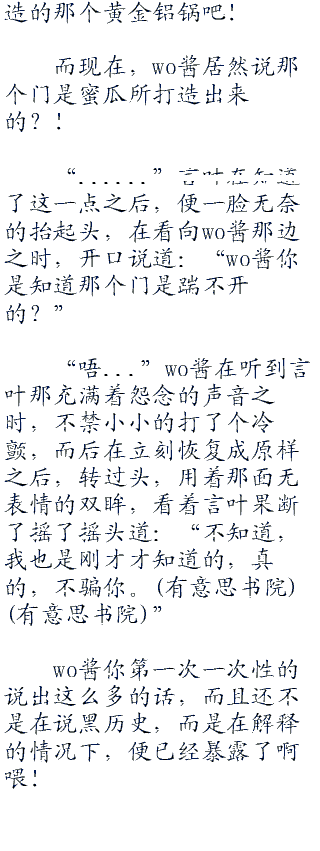 造的那个黄金铝锅吧!
而现在，wo酱居然说那
个门是蜜瓜所打造出来
的？!
“......”言叶在知道
了这一点之后，便一脸无奈
的抬起头，在看向wo酱那边
之时，开口说道：“wo酱你
是知道那个门是踹不开
的？”
“唔...”wo酱在听到言
叶那充满着怨念的声音之
时，不禁小小的打了个冷
颤，而后在立刻恢复成原样
之后，转过头，用着那面无
表情的双眸，看着言叶果断
了摇了摇头道：“不知道，
我也是刚才才知道的，真
的，不骗你。(有意思书院)
(有意思书院)”
wo酱你第一次一次性的
说出这么多的话，而且还不
是在说黑历史，而是在解释
的情况下，便已经暴露了啊
喂!